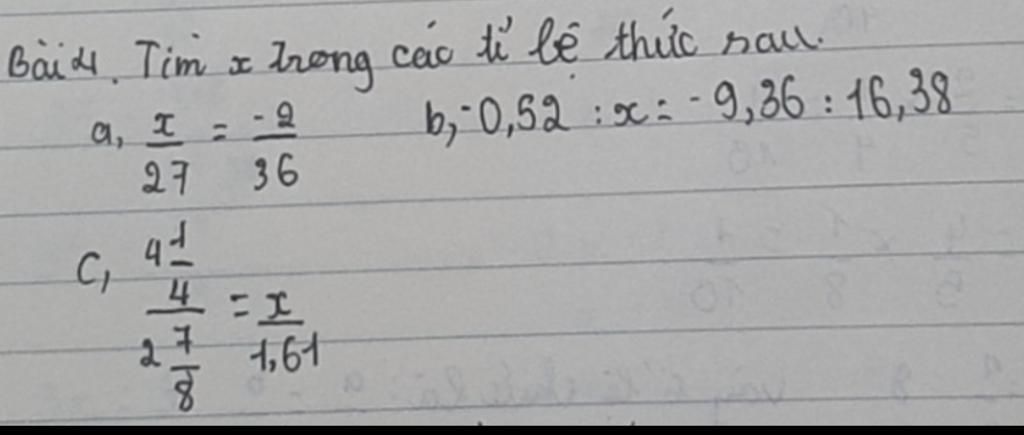 Bài 4. Tìm x trong các tỉ lệ thức sau.
a, x/27 = -2/36 b, -0,52 : x = -9,36 : 16,38
c, (4 1/4)/(2 7/8) = x/1,61